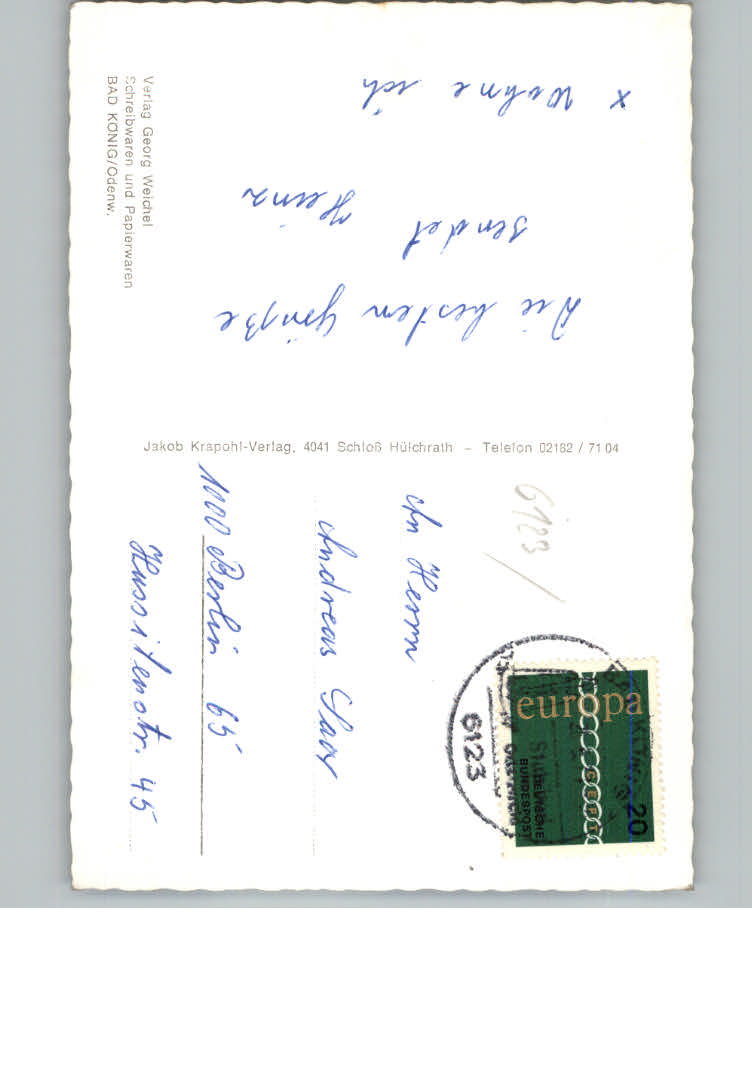 x Wohne ich
Die besten Grüße
sendet
Heinz
Verlag Georg Weichel
Schreibwaren und Papierwaren
BAD KÖNIG/Odenw.
Jakob Krapohl-Verlag, 4041 Schloß Hülchrath – Telefon 02182 / 71 04
6123
An Herrn
Andreas
1000 Berlin 65
Hussitenstr. 45
europa
CEPT
20
DEUTSCHE
BUNDESPOST
6123